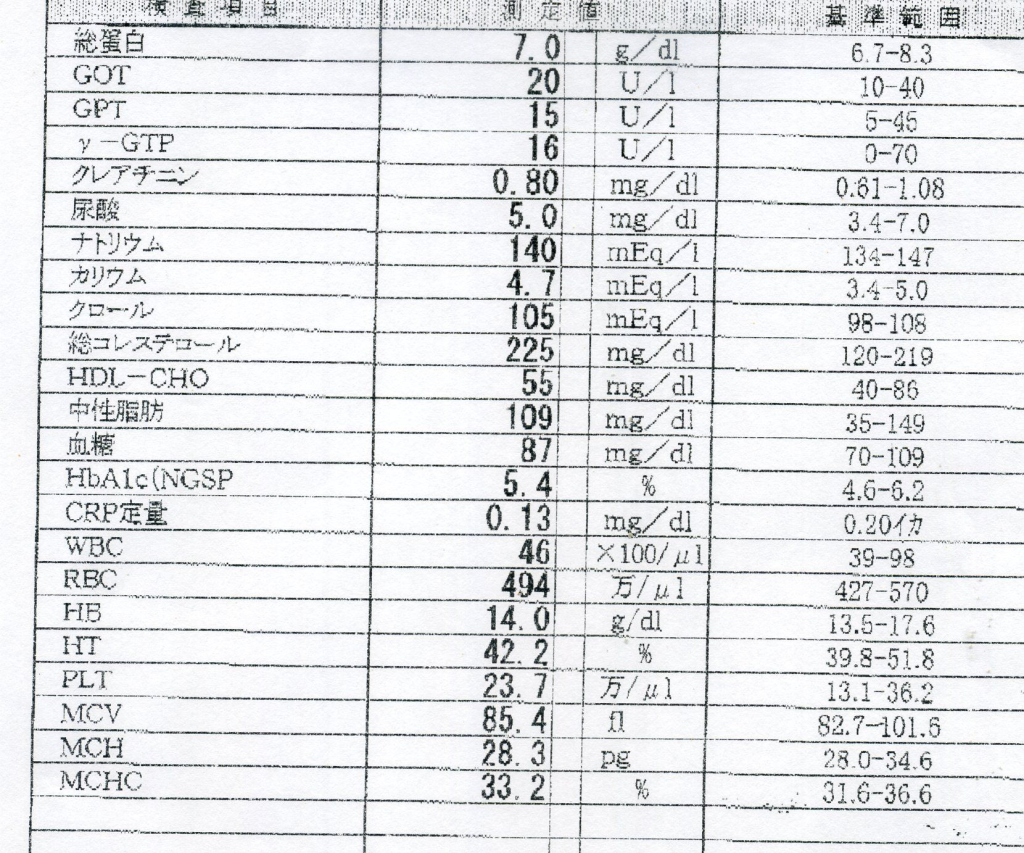 検査項目 測定値 基準範囲
総蛋白 7.0 g/dl 6.7-8.3
GOT 20 U/l 10-40
GPT 15 U/l 5-45
γ-GTP 16 U/l 0-70
クレアチニン 0.80 mg/dl 0.61-1.08
尿酸 5.0 mg/dl 3.4-7.0
ナトリウム 140 mEq/l 134-147
カリウム 4.7 mEq/l 3.4-5.0
クロール 105 mEq/l 98-108
総コレステロール 225 mg/dl 120-219
HDL-CHO 55 mg/dl 40-86
中性脂肪 109 mg/dl 35-149
血糖 87 mg/dl 70-109
HbA1c(NGSP 5.4 % 4.6-6.2
CRP定量 0.13 mg/dl 0.20イカ
WBC 46 ×100/μl 39-98
RBC 494 万/μl 427-570
HB 14.0 g/dl 13.5-17.6
HT 42.2 % 39.8-51.8
PLT 23.7 万/μl 13.1-36.2
MCV 85.4 fl 82.7-101.6
MCH 28.3 pg 28.0-34.6
MCHC 33.2 % 31.6-36.6